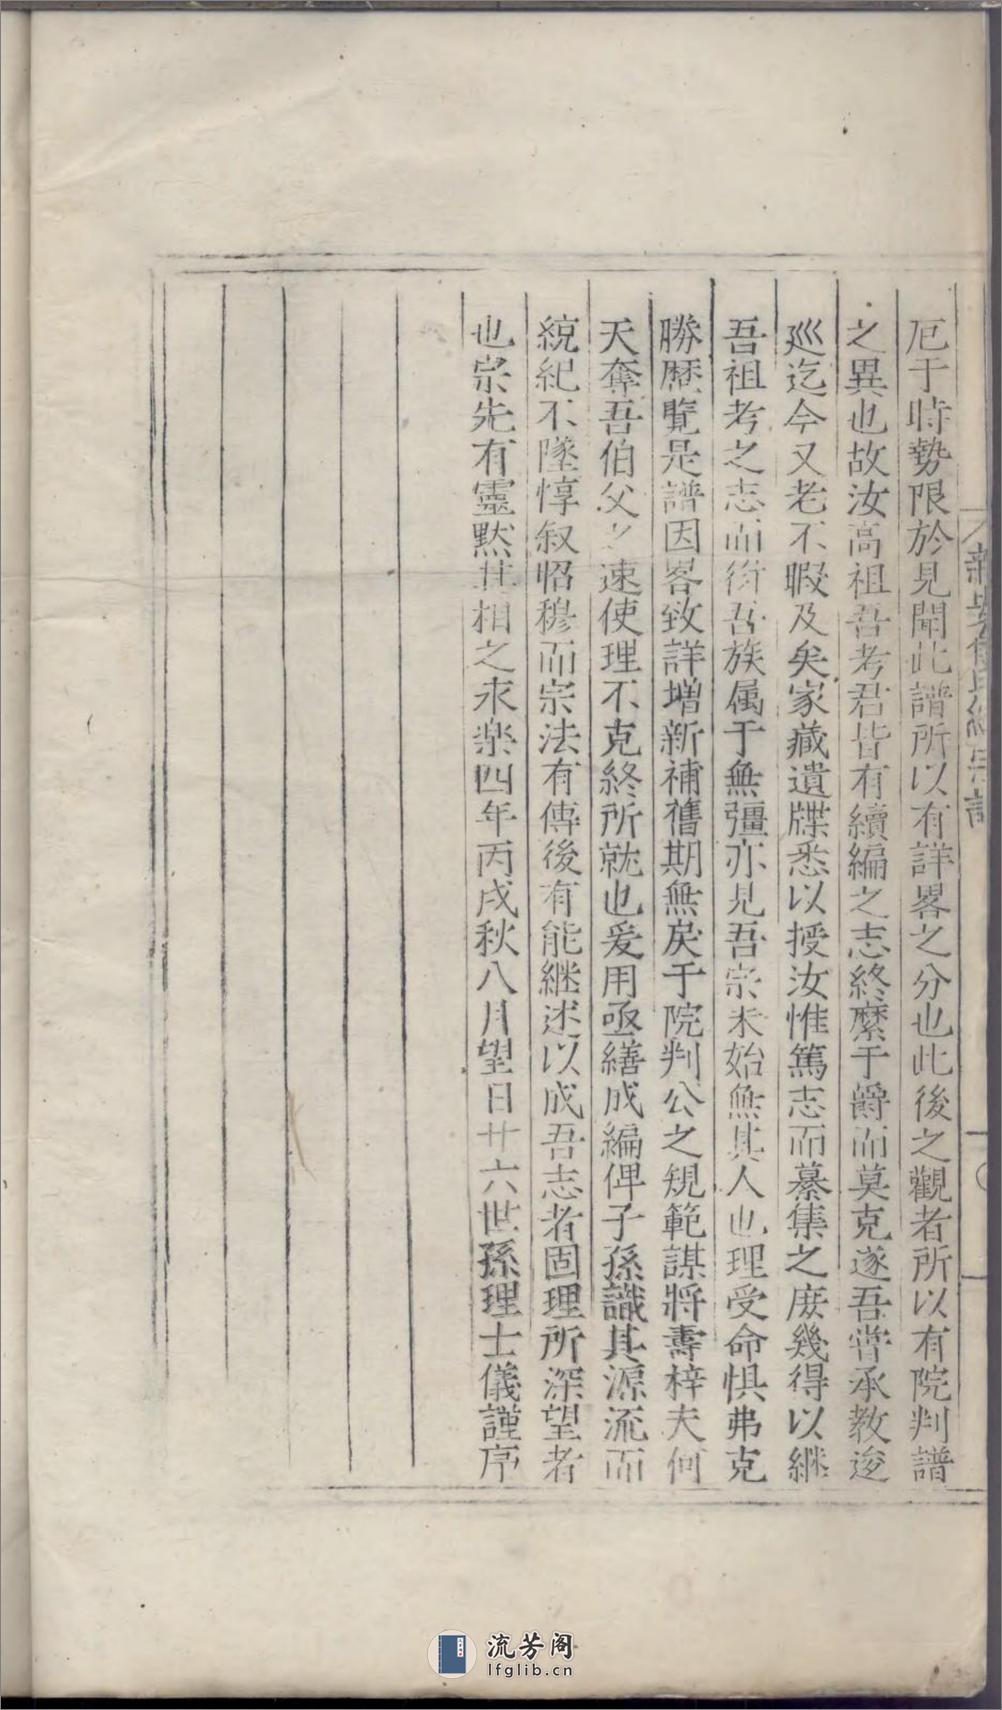 厄于時勢限於見聞此譜所以有詳畧之分也此後之觀者所以有院判譜
之異也故汝高祖吾考君皆有續編之志終縻于爵而莫克遂吾嘗承教逡
巡迄今又老不暇及矣家藏遺牒悉以授汝惟篤志而纂集之庻幾得以継
吾祖考之志而衍吾族属于無彊亦見吾宗未始無其人也理受命惧弗克
勝歴覧是譜因畧致詳増新補舊期無戾于院判公之規範謀將壽梓夫何
天奪吾伯父之速使理不克終所就也爰用亟繕成編俾子孫識其源流而
統紀不墜惇叙昭穆而宗法有傳後有能継述以成吾志者固理所深望者
也宗先有靈黙其相之永楽四年丙戌秋八月望日廿六世孫理士儀謹序
流芳阁
lfglib.cn